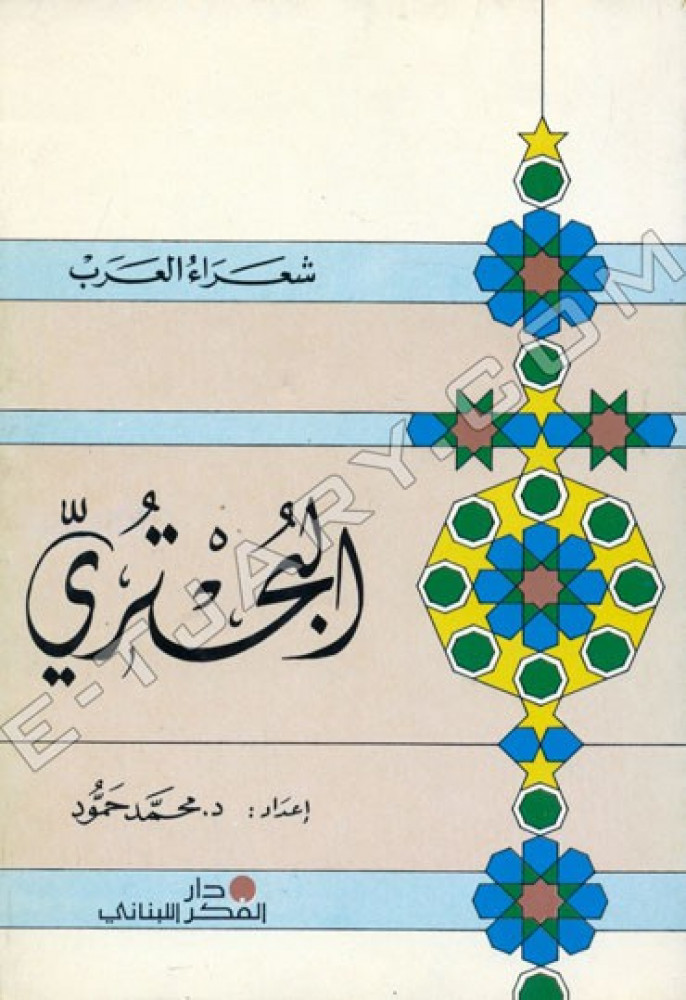 شعَراءُ العَرَبْ
البُحْتُريّ
إعداد: د. محمَّد حمُّود
دار
الفكر اللبناني
E-TJARY.COM